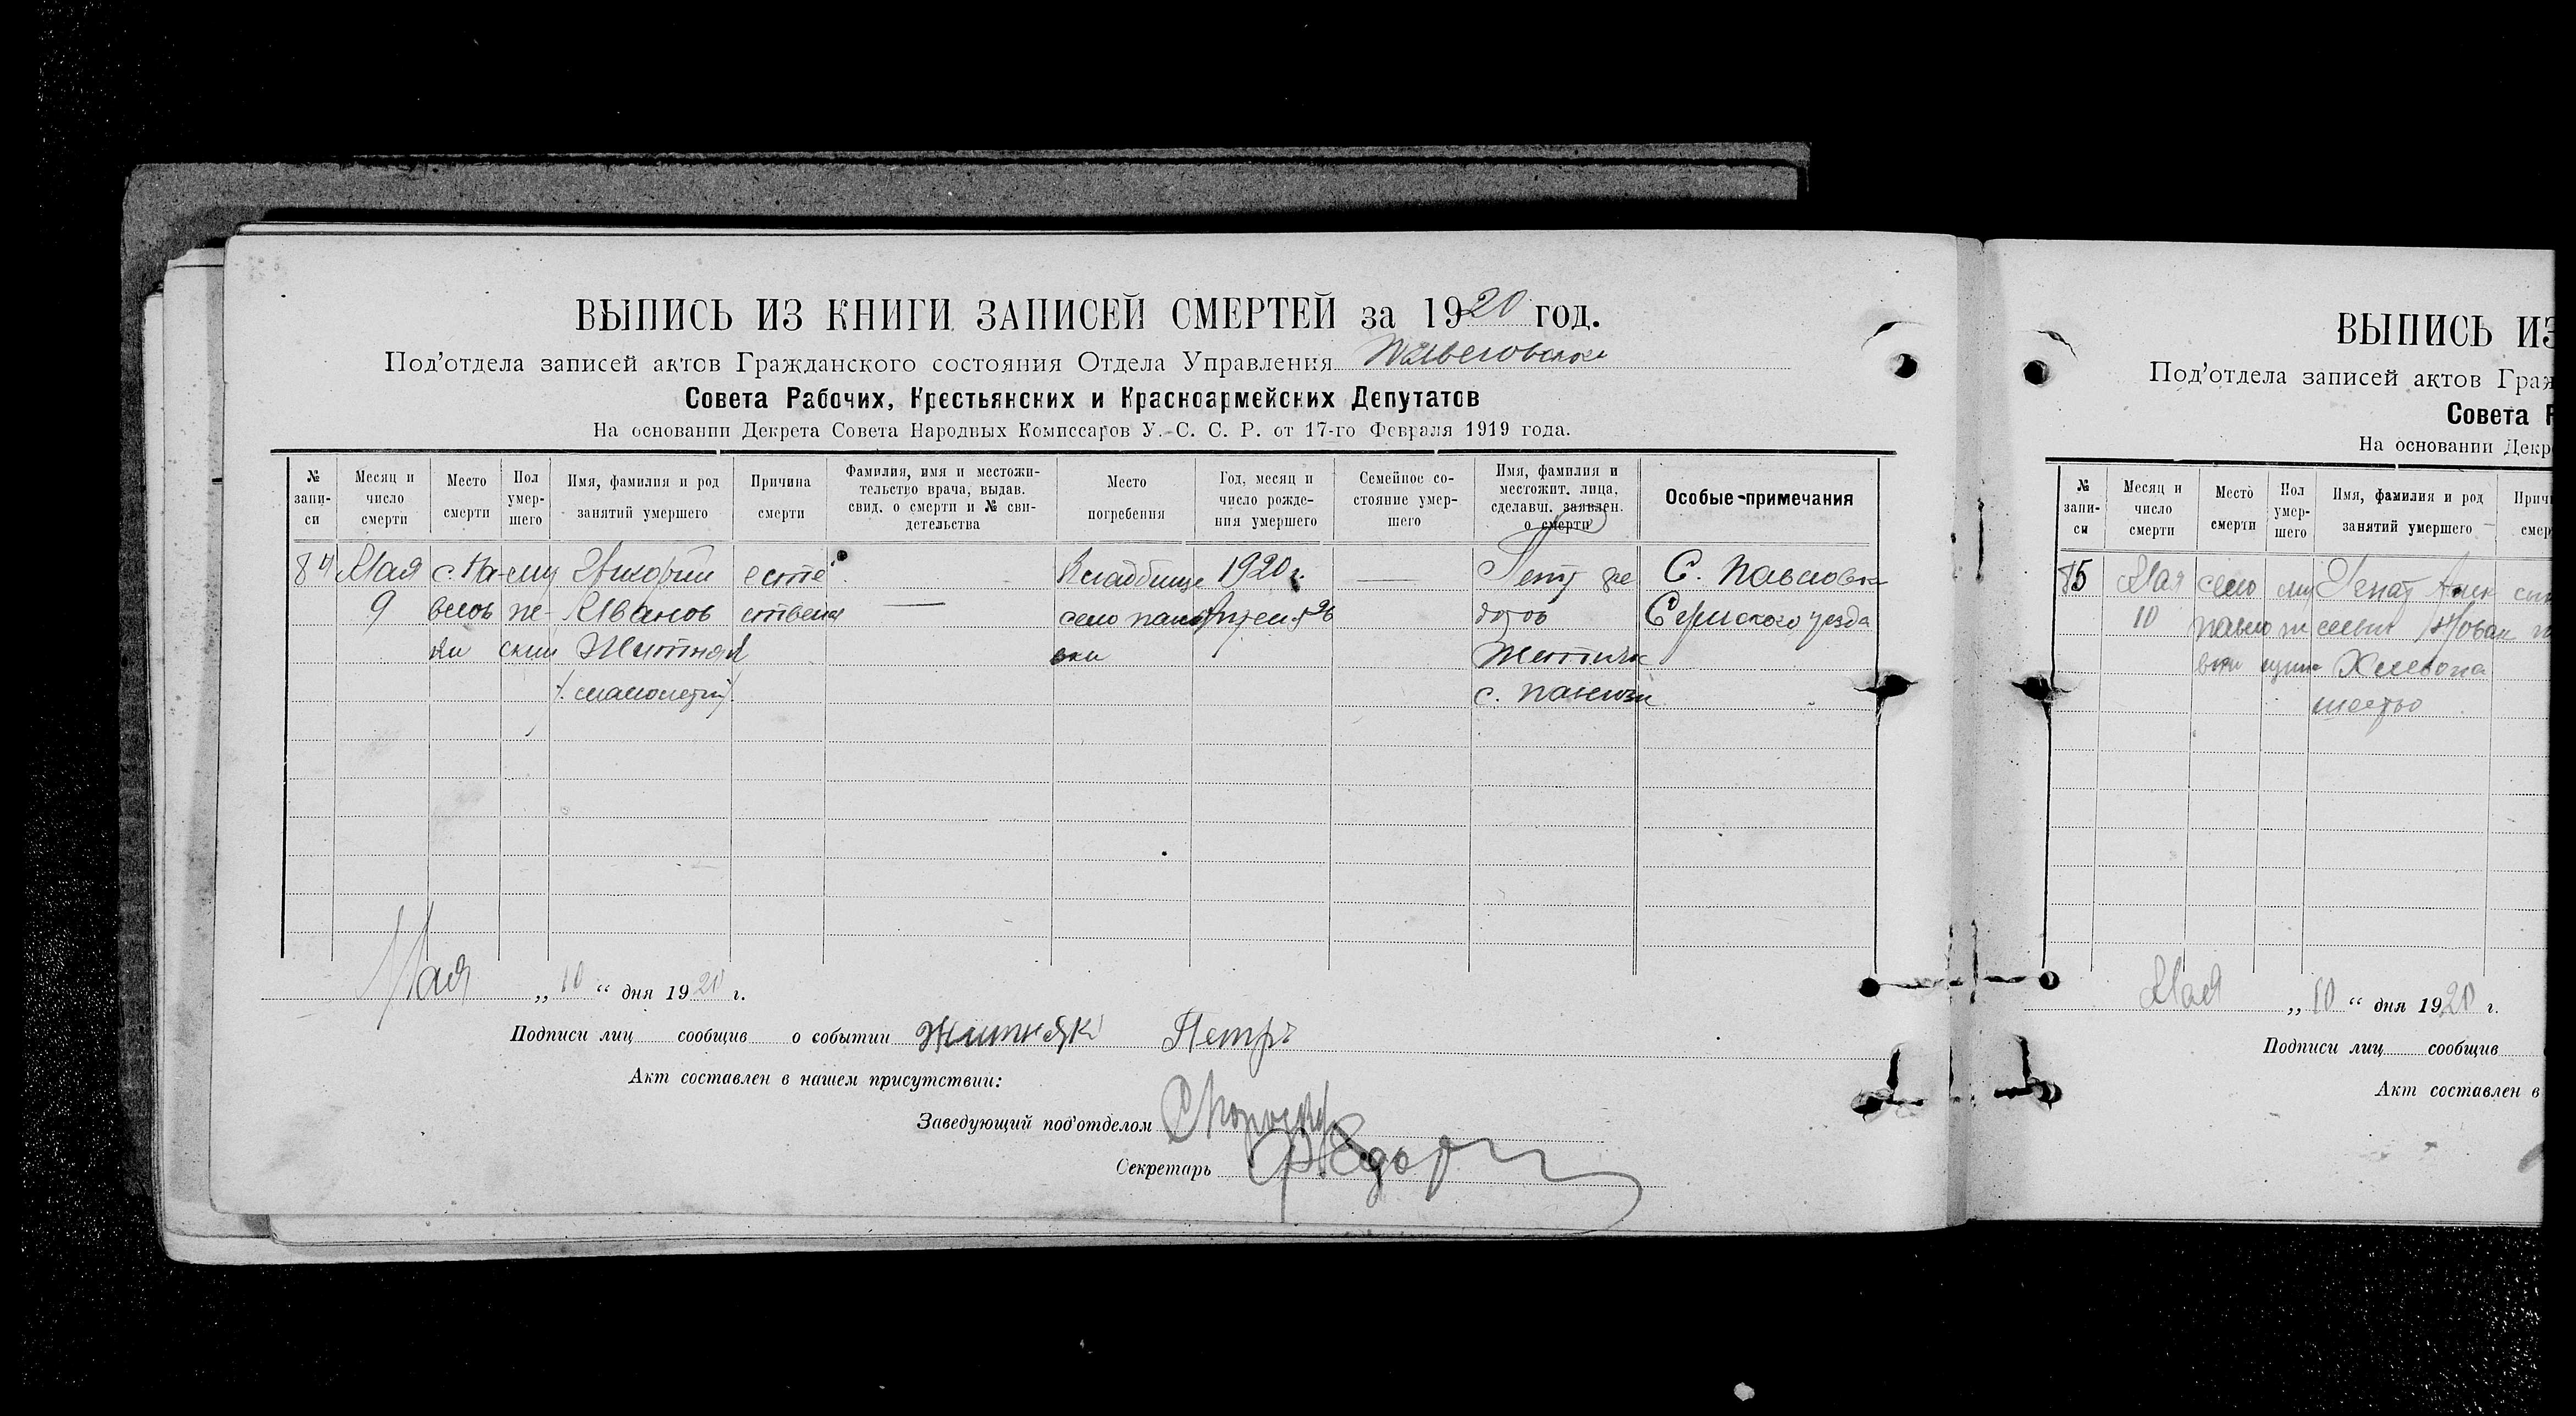 ВЫПИСЬ ИЗ КНИГИ ЗАПИСЕЙ СМЕРТЕЙ за 1920 год.
Под'отдела записей актов Гражданского состояния Отдела Управления
Совета Рабочих, Крестьянских и Красноармейских Депутатов
На основании Декрета Совета Народных Комиссаров У. С. С. Р. от 17-го Февраля 1919 года.
№ запи-
си
Месяц и
число
смерти
Место
смерти
Пол
умер-
шего
Имя, фамилия и род
занятий умершего
Причина
смерти
Фамилия, имя и местожи-
тельство врача, выдав.
свид. о смерти и № сви-
детельства
Место
погребения
Год, месяц и
число рожде-
ния умершего
Семейное со-
стояние умер-
шего
Имя, фамилия и
местожит. лица,
сделавш. заявлен.
о смерти
Особые примечания
84
Мая
9
с. Па-
влов
ки
му
же-
ский
Иванов
Житняк
есте
ствена
Кладбище
село
вки
1920 г.
26
Петр Фе
доров
Житняк
с.
С. Павловка
Сумского уезда
Мая „10“ дня 1920 г.
Подписи лиц сообщив о событии Житняк Петръ
Акт составлен в нашем присутствии:
Заведующий под'отделом
Секретарь
ВЫПИСЬ ИЗ
Под'отдела записей актов Граж
Совета Р
На основании Декр
№
запи-
си
Месяц и
число
смерти
Место
смерти
Пол
умер-
шего
Имя, фамилия и род
занятий умершего
Причи
смер
85
Мая
10
село
павло
вки
Мая „10“ дня 1920 г.
Подписи лиц сообщив
Акт составлен в